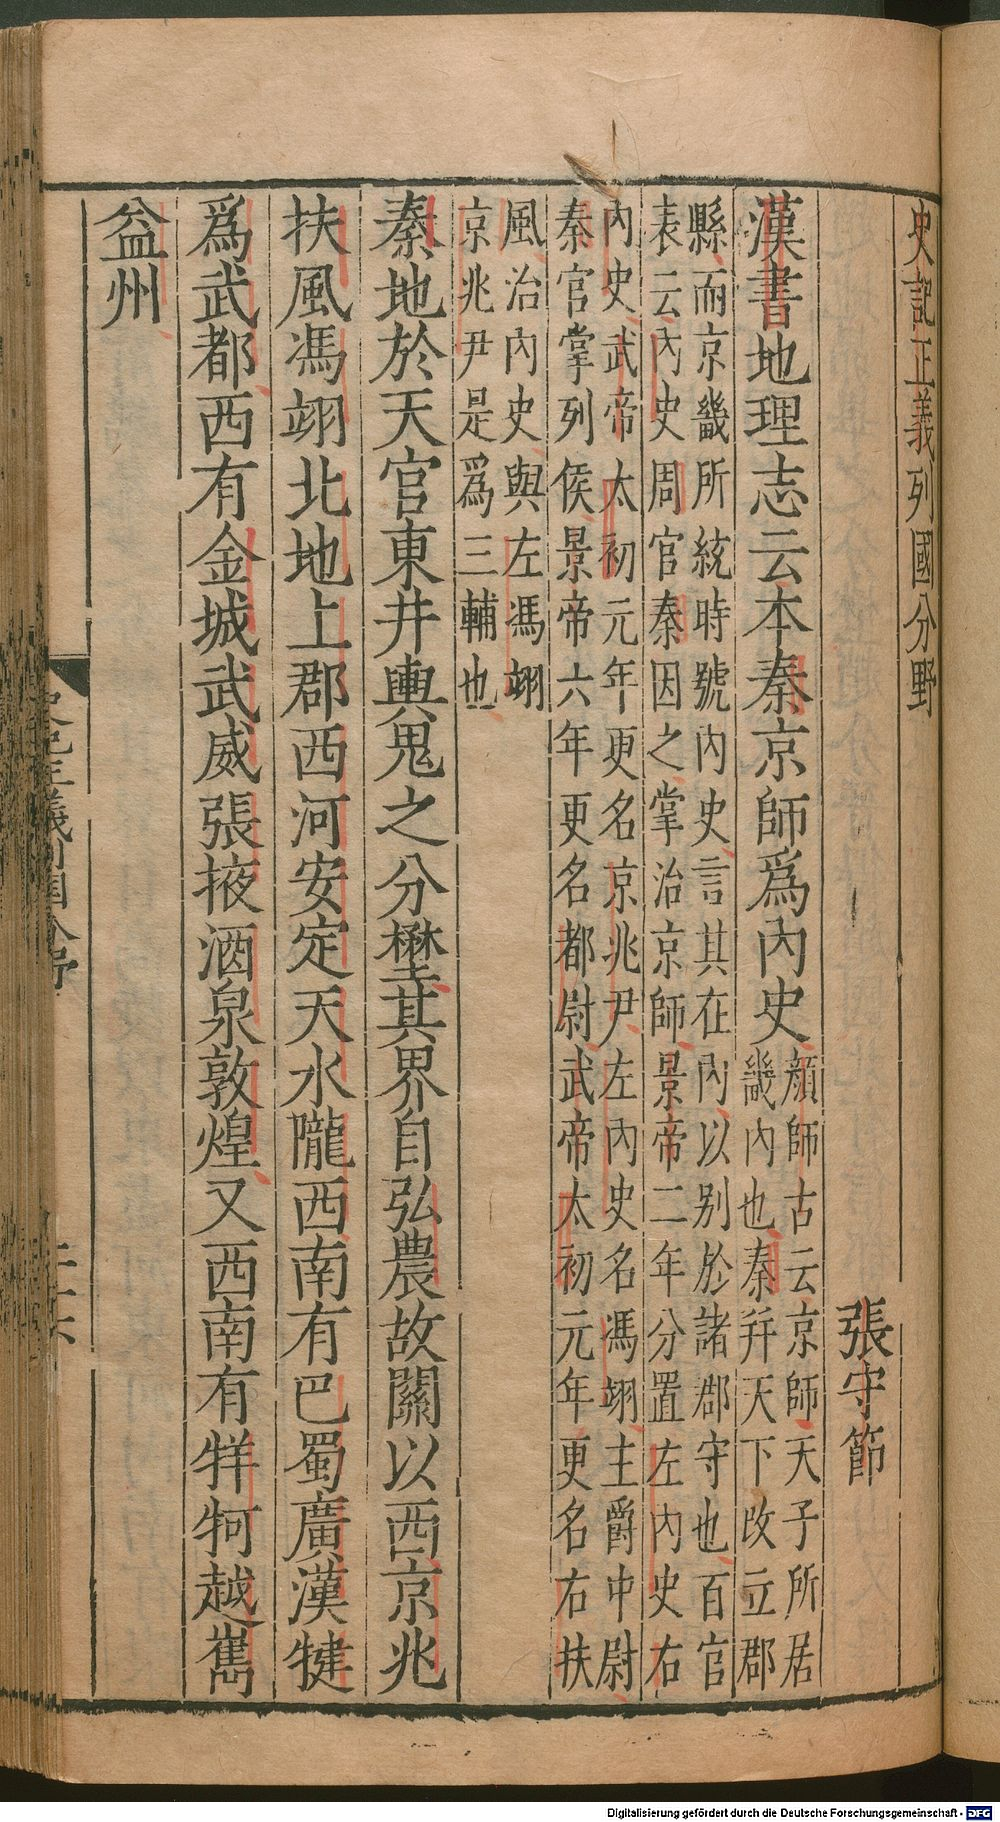 史記正義列國分野
張守節
漢書地理志云本秦京師爲內史顔師古云京師天子所居
畿內也秦并天下改立郡
縣而京畿所統時號內史言其在內以别於諸郡守也百官
表云內史周官秦因之掌治京師景帝二年分置左內史右
內史武帝太初元年更名京兆尹左內史名馮翊主爵中尉
秦官掌列侯景帝六年更名都尉武帝太初元年更名右扶
風治內史與左馮翊
京兆尹是爲三輔也
秦地於天官東井輿鬼之分壄其界自弘農故關以西京兆
扶風馮翊北地上郡西河安定天水隴西南有巴蜀廣漢犍
爲武都西有金城武威張掖酒泉敦煌又西南有牂牁越巂
益州
史記正義列國分野
二十六
Digitalisierung gefördert durch die Deutsche Forschungsgemeinschaft - DFG